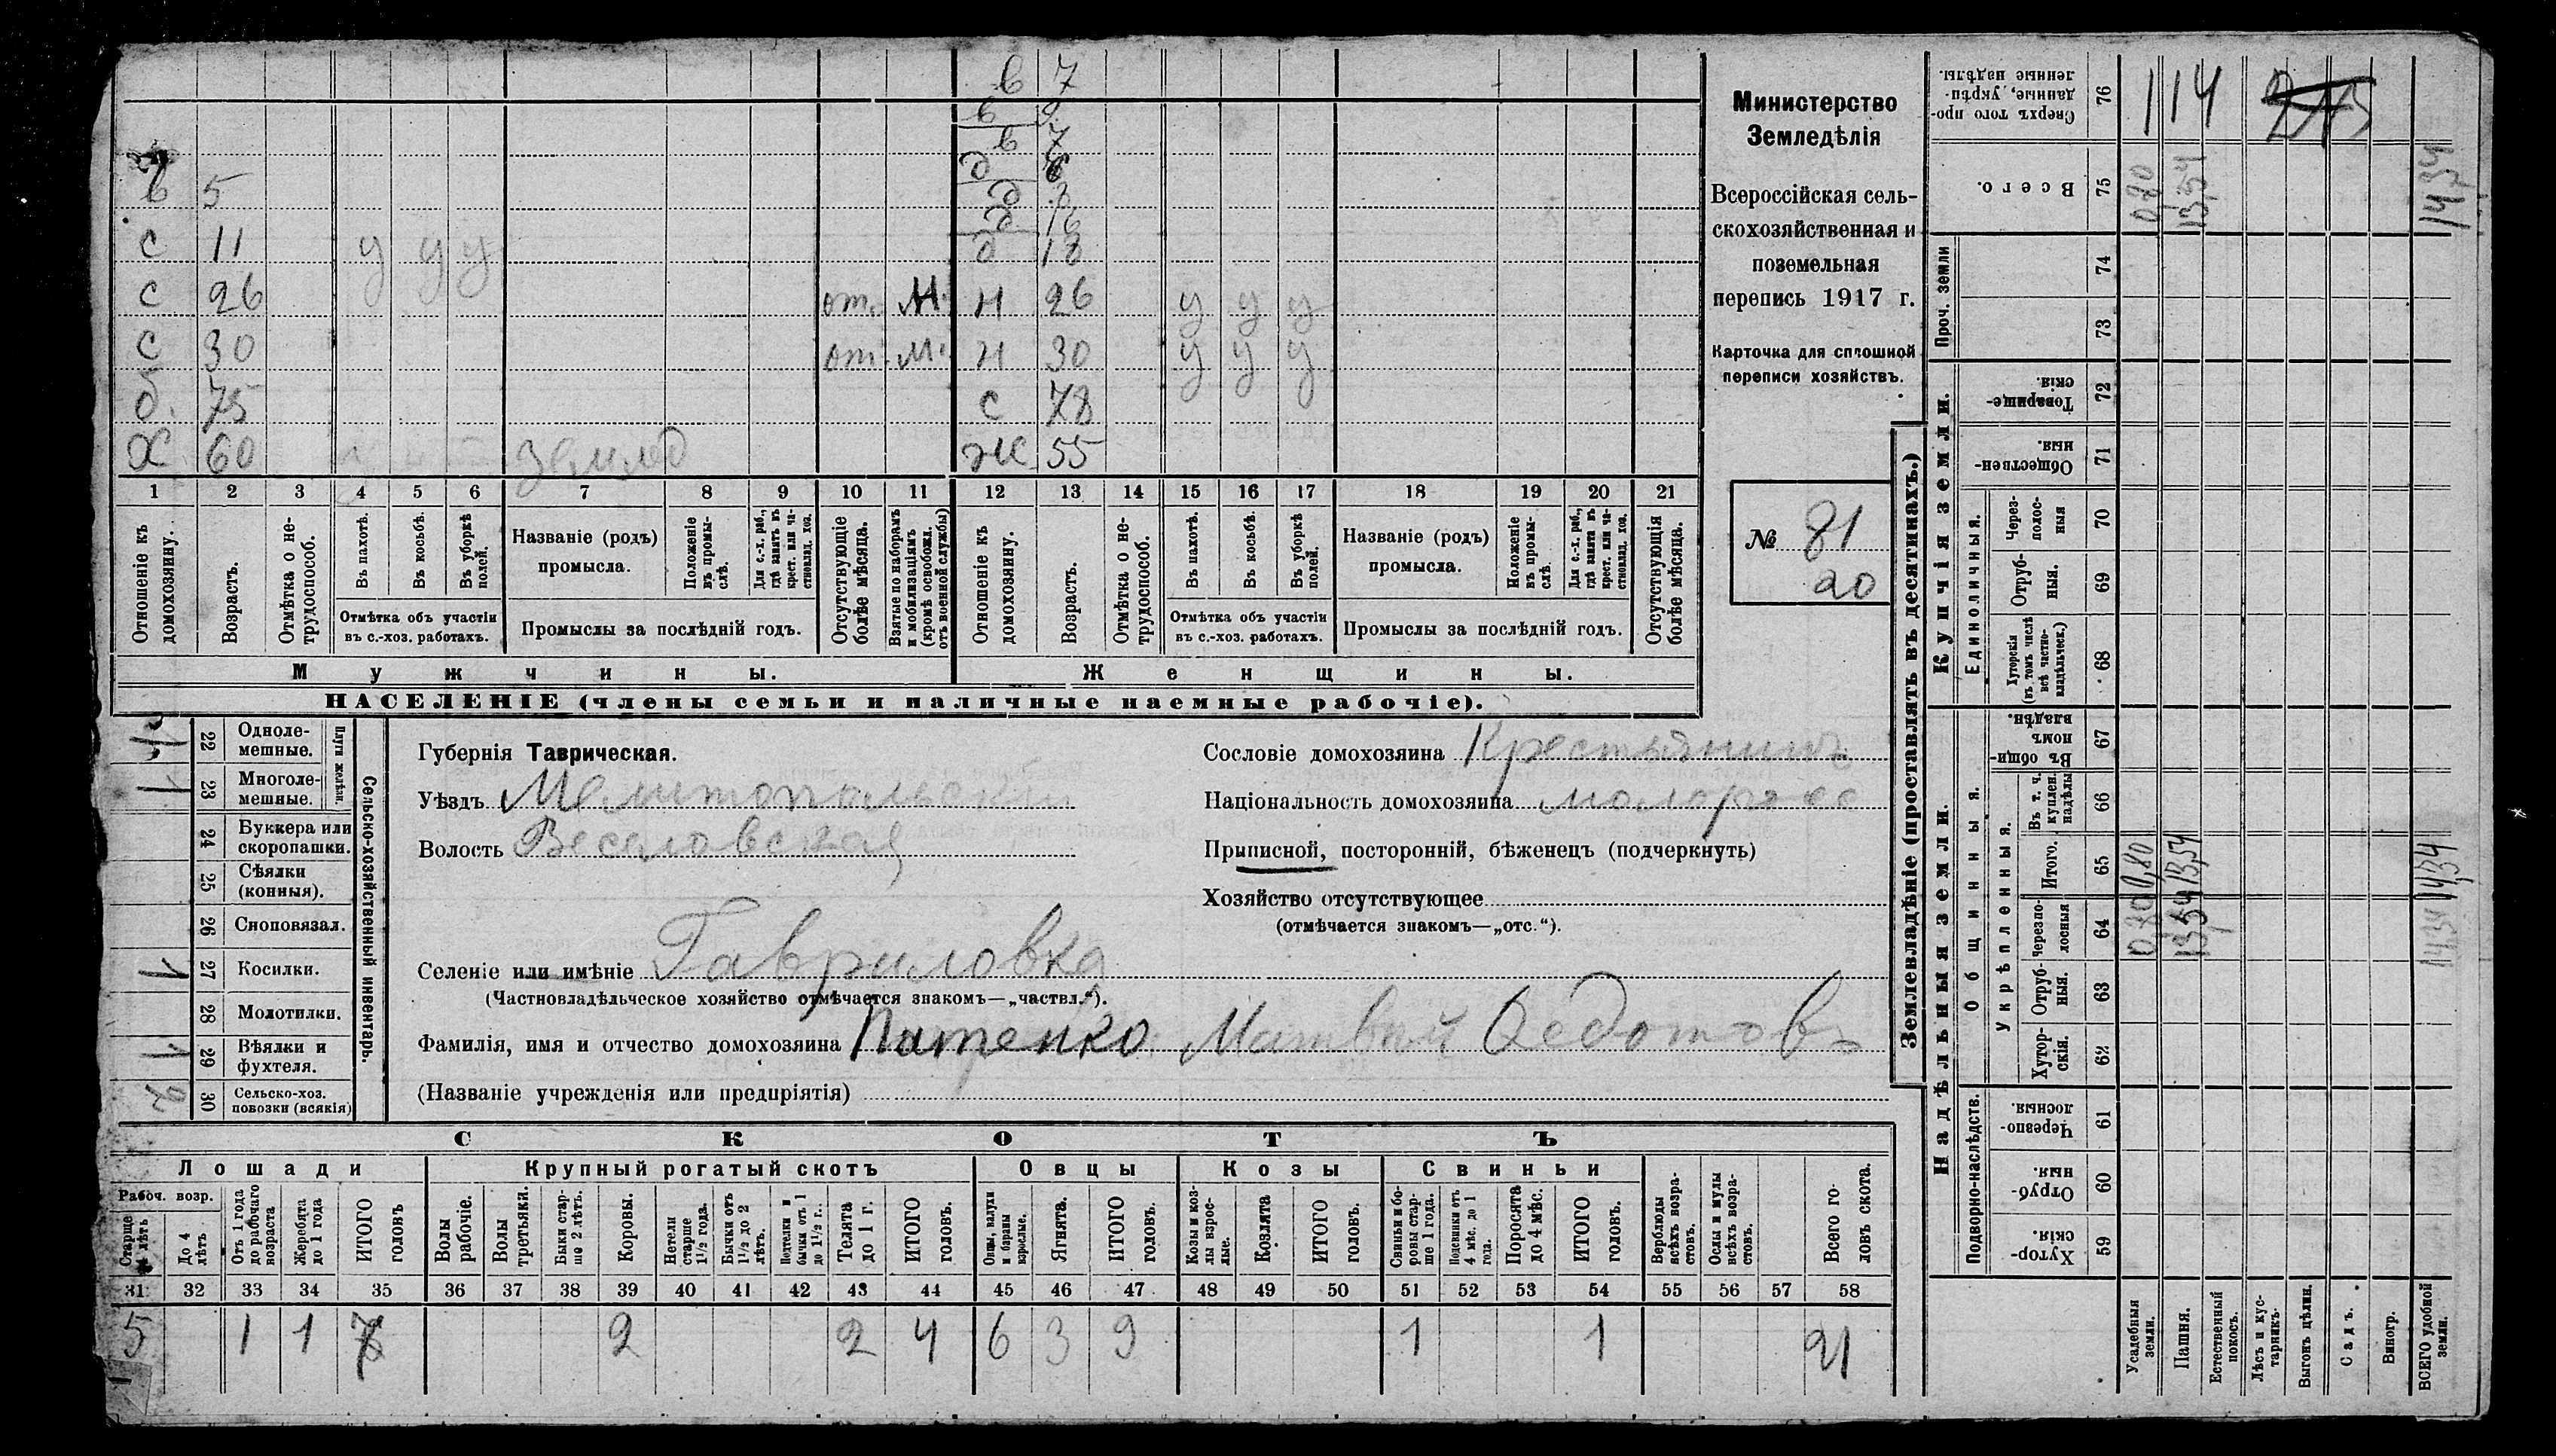 в 7
в 9
в 7
д 6
в 5 д 3
д 16
с 11 у у у д 18
с 26 от. М. н 26 у у у
с 30 от. М. н 30 у у у
б. 75 с 78
Х 60 землед ж 55
1 2 3 4 5 6 7 8 9 10 11 12 13 14 15 16 17 18 19 20 21
Отношеніе къ домохозяину.
Возрастъ.
Отмѣтка о не-трудоспособ.
Въ пахотѣ.
Въ косьбѣ.
Въ уборкѣ полей.
Отмѣтка объ участіи
въ с.-хоз. работахъ.
Названіе (родъ)
промысла.
Положеніе въ промы-слѣ.
Для с.-х. раб., гдѣ занятъ въ крест. или ча-стновлад. хоз.
Промыслы за послѣдній годъ.
Отсутствующіе болѣе мѣсяца.
Взятые по наборамъ и мобилизаціямъ (кромѣ освобожд. отъ военной службы)
Отношеніе къ домохозяину.
Возрастъ.
Отмѣтка о не-трудоспособ.
Въ пахотѣ.
Въ косьбѣ.
Въ уборкѣ полей.
Отмѣтка объ участіи
въ с.-хоз. работахъ.
Названіе (родъ)
промысла.
Положеніе въ промы-слѣ.
Для с.-х. раб., гдѣ занята въ крест. или ча-стновлад. хоз.
Промыслы за послѣдній годъ.
Отсутствующія болѣе мѣсяца.
Мужчины.
Женщины.
НАСЕЛЕНІЕ (члены семьи и наличные наемные рабочіе).
Министерство
Земледѣлія
Всероссійская сель-
скохозяйственная и
поземельная
перепись 1917 г.
Карточка для сплошной
переписи хозяйствъ.
№ 81
20
22 Одноле-мешные.
1 23 Многоле-мешные.
Плуги желѣзн.
24 Буккера или скоропашки.
25 Сѣялки (конныя).
26 Сноповязал.
1 27 Косилки.
28 Молотилки.
1 29 Вѣялки и фухтеля.
30 Сельско-хоз. повозки (всякія)
Сельско-хозяйственный инвентарь.
Губернія Таврическая.
Уѣздъ Мелитопольскій
Волость Веселовская
Селеніе или имѣніе Гавриловка
(Частновладѣльческое хозяйство отмѣчается знакомъ—„частвл.“).
Фамилія, имя и отчество домохозяина Патенко Матвей Федотовъ
(Названіе учрежденія или предпріятія)
Сословіе домохозяина Крестьянинъ
Національность домохозяина малоросс
Приписной, посторонній, бѣженецъ (подчеркнуть)
Хозяйство отсутствующее
(отмѣчается знакомъ—„отс.“).
СКОТЪ
Лошади
Рабоч. возр.
Старше 4 лѣтъ
До 4 лѣтъ
Отъ 1 года до рабочаго возраста
Жеребята до 1 года
ИТОГО головъ
Крупный рогатый скотъ
Волы рабочіе.
Волы третьяки.
Быки стар-ше 2 лѣтъ.
Коровы.
Нетели старше 1½ года.
Бычки отъ 1½ до 2 лѣтъ.
Нетелки и бычки отъ 1 до 1½ г.
Телята до 1 г.
ИТОГО головъ.
Овцы
Овцы, валухи и бараны взрослые.
Ягнята.
ИТОГО головъ.
Козы
Козы и коз-лы взрос-лые.
Козлята
ИТОГО головъ.
Свиньи
Свиньи и бо-ровы стар-ше 1 года.
Подсвинки отъ 4 мѣс. до 1 года.
Поросята до 4 мѣс.
ИТОГО головъ.
Верблюды всѣхъ возра-стовъ.
Ослы и мулы всѣхъ возра-стовъ.
Всего го-ловъ скота.
31 32 33 34 35 36 37 38 39 40 41 42 43 44 45 46 47 48 49 50 51 52 53 54 55 56 57 58
5 1 1 7 2 2 4 6 3 9 1 1 21
Землевладѣніе (проставлять въ десятинахъ.)
Надѣльныя земли.
Купчія земли.
Проч. земли
Подворно-наслѣдств.
Общинныя.
Укрѣпленныя.
Единоличныя.
Сверхъ того про-данные, укрѣп-ленные надѣлы. 76 114
Всего. 75 0,80 13,54 14,34
74
73
Товарище-скія. 72
Обществен-ныя. 71
Через-полос-ныя 70
Отруб-ныя. 69
Хуторскія (въ томъ числѣ всѣ частно-владѣльческ.) 68
Въ общи-номъ владѣн. 67
Въ т. ч. куплен. надѣлы 66
Итого. 65 0,80 13,54 14,34
Черезпо-лосныя 64 0,80 13,54 14,34
Отруб-ныя. 63
Хутор-скія. 62
Черезпо-лосныя. 61
Отруб-ныя. 60
Хутор-скія. 59
Усадебныя земли.
Пашня.
Естественный покосъ.
Лѣсъ и кус-тарникъ.
Выгонъ цѣлин.
Садъ.
Виногр.
ВСЕГО удобной земли.